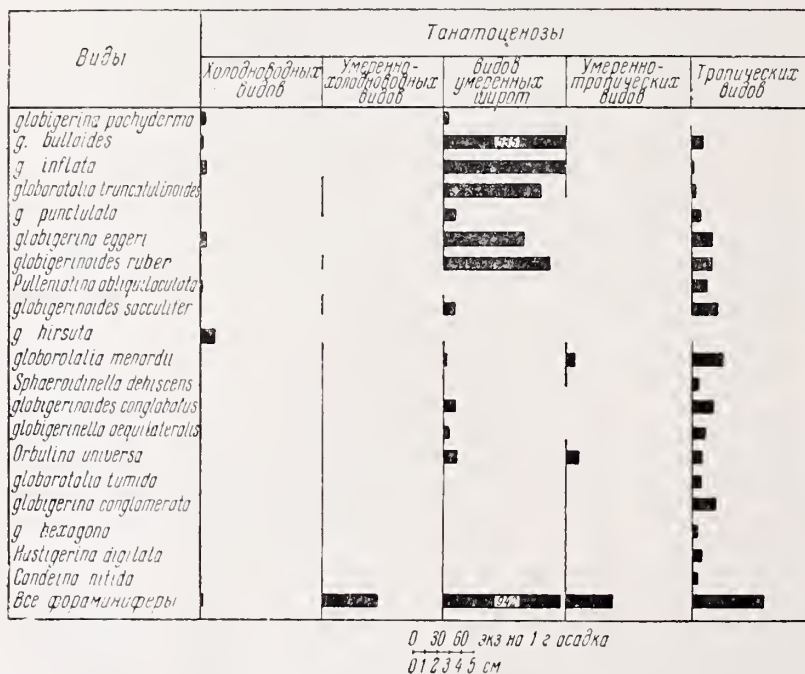 Виды
Танатоценозы
Холодноводных видов
Умеренно-холодноводных видов
видов умеренных широт
Умеренно-тропических видов
Тропических видов
globigerina pachyderma
g. bulloides
g inflata
globorotalia truncatulinoides
g punctulata
globigerina eggeri
globigerinoides ruber
Pulleniatina obliquiloculata
globigerinoides sacculifer
g hirsuta
globorotalia menardii
Sphaeroidinella dehiscens
globigerinoides conglobatus
globigerinella aequilateralis
Orbulina universa
globorotalia tumida
globigerina conglomerata
g hexagona
Hastigerina digitata
Candeina nitida
Все фораминиферы
0 30 60 экз на 1 г осадка
0 1 2 3 4 5 см